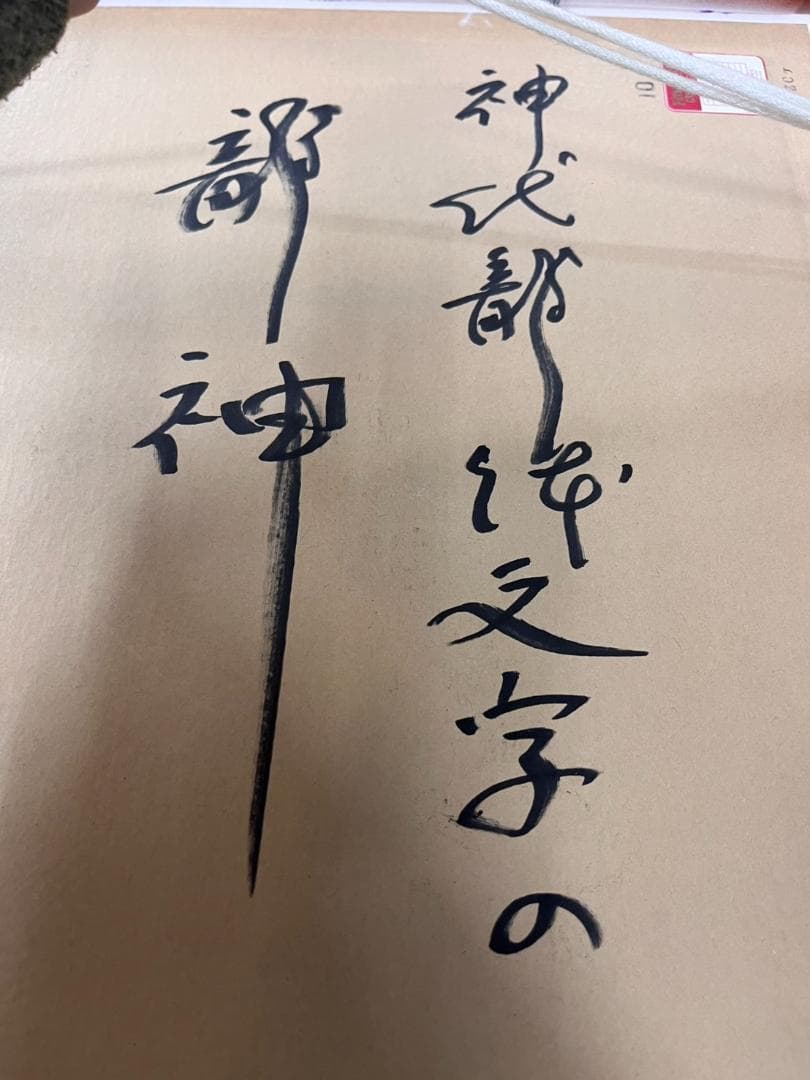 神代龍体文字の
龍神